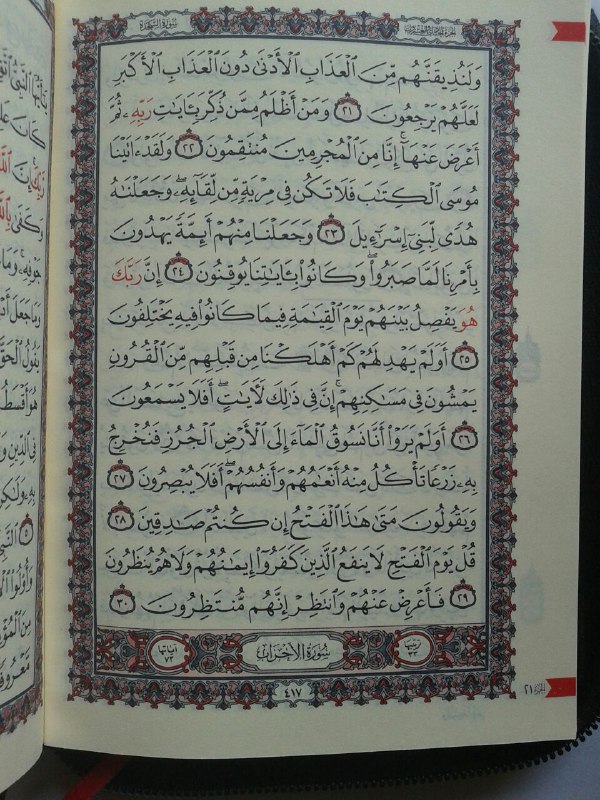 سُورَةُ السَّجْدَةِ
الجُزْءُ الحَادِي وَالعِشْرُونَ
وَلَنُذِيقَنَّهُم مِّنَ الْعَذَابِ الْأَدْنَىٰ دُونَ الْعَذَابِ الْأَكْبَرِ
لَعَلَّهُمْ يَرْجِعُونَ ٢١ وَمَنْ أَظْلَمُ مِمَّن ذُكِّرَ بِـَٔايَٰتِ رَبِّهِۦ ثُمَّ
أَعْرَضَ عَنْهَآ ۚ إِنَّا مِنَ الْمُجْرِمِينَ مُنتَقِمُونَ ٢٢ وَلَقَدْ ءَاتَيْنَا
مُوسَى الْكِتَٰبَ فَلَا تَكُن فِى مِرْيَةٍ مِّن لِّقَآئِهِۦ ۖ وَجَعَلْنَٰهُ
هُدًى لِّبَنِىٓ إِسْرَٰٓءِيلَ ٢٣ وَجَعَلْنَا مِنْهُمْ أَئِمَّةً يَهْدُونَ
بِأَمْرِنَا لَمَّا صَبَرُوا۟ ۖ وَكَانُوا۟ بِـَٔايَٰتِنَا يُوقِنُونَ ٢٤ إِنَّ رَبَّكَ
هُوَ يَفْصِلُ بَيْنَهُمْ يَوْمَ الْقِيَٰمَةِ فِيمَا كَانُوا۟ فِيهِ يَخْتَلِفُونَ
٢٥ أَوَلَمْ يَهْدِ لَهُمْ كَمْ أَهْلَكْنَا مِن قَبْلِهِم مِّنَ الْقُرُونِ
يَمْشُونَ فِى مَسَٰكِنِهِمْ ۚ إِنَّ فِى ذَٰلِكَ لَـَٔايَٰتٍ ۖ أَفَلَا يَسْمَعُونَ
٢٦ أَوَلَمْ يَرَوْا۟ أَنَّا نَسُوقُ الْمَآءَ إِلَى الْأَرْضِ الْجُرُزِ فَنُخْرِجُ
بِهِۦ زَرْعًا تَأْكُلُ مِنْهُ أَنْعَٰمُهُمْ وَأَنفُسُهُمْ ۖ أَفَلَا يُبْصِرُونَ ٢٧
وَيَقُولُونَ مَتَىٰ هَٰذَا الْفَتْحُ إِن كُنتُمْ صَٰدِقِينَ ٢٨
قُلْ يَوْمَ الْفَتْحِ لَا يَنفَعُ الَّذِينَ كَفَرُوٓا۟ إِيمَٰنُهُمْ وَلَا هُمْ يُنظَرُونَ
٢٩ فَأَعْرِضْ عَنْهُمْ وَانتَظِرْ إِنَّهُم مُّنتَظِرُونَ ٣٠
ترتيبها ٣٣ سُورَةُ الْأَحْزَابِ آياتها ٧٣
٤١٧
الجزء ٢١